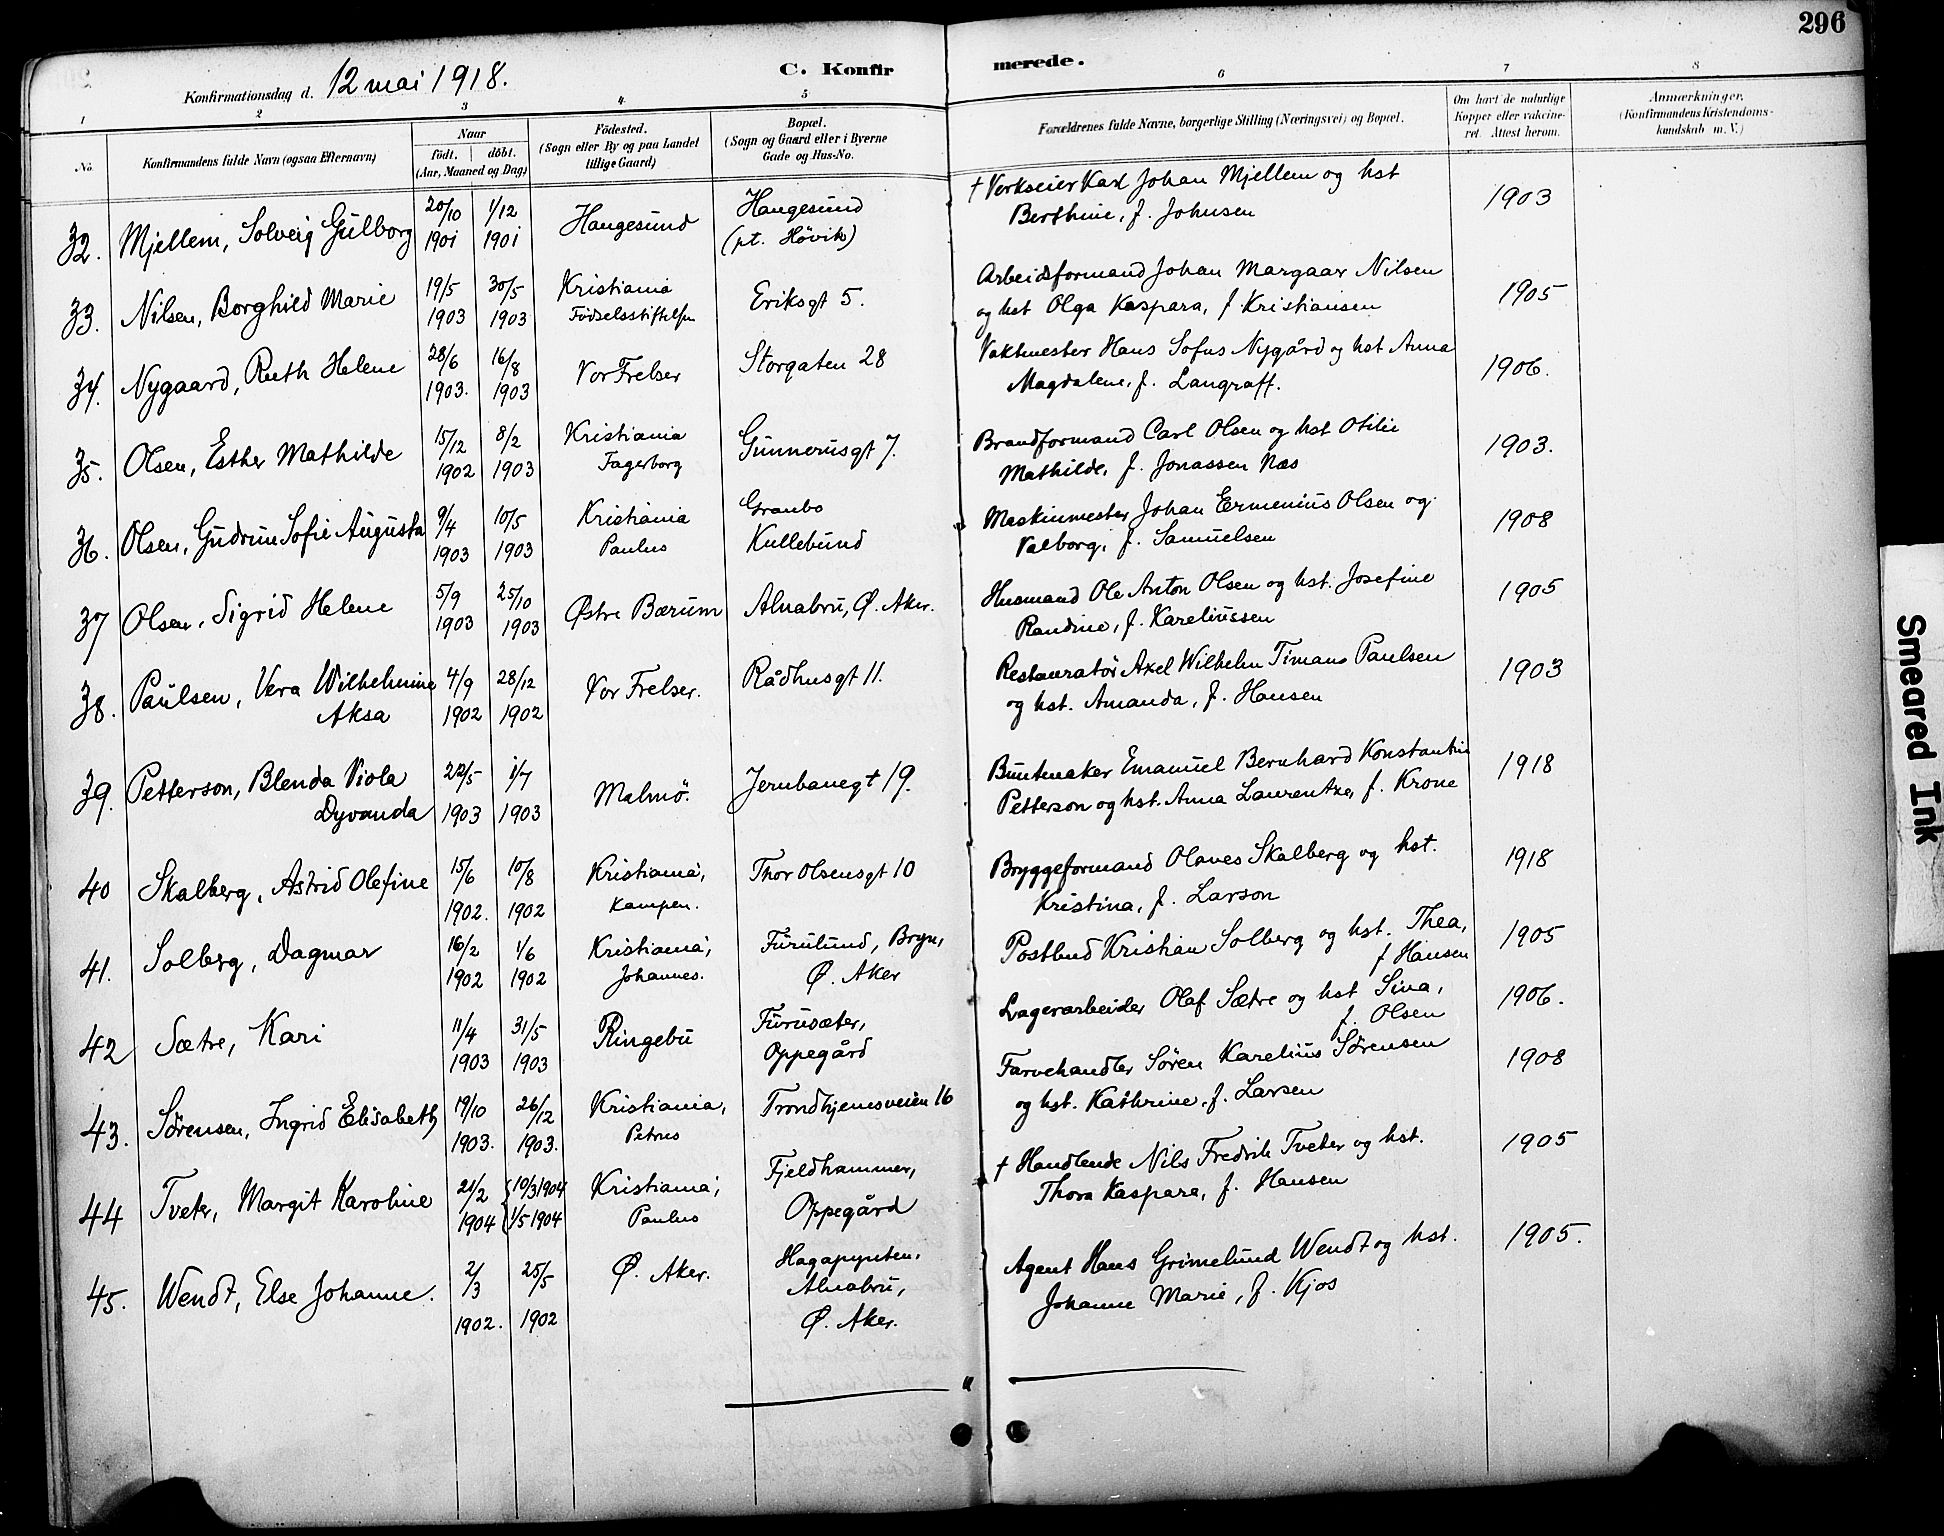 296
C. Konfirmerede.
Konfirmationsdag d. 12 mai 1918.
1 2 3 4 5 6 7 8
No. Konfirmandens fulde Navn (ogsaa Efternavn) Naar födt. döbt. (Aar, Maaned og Dag) Födested. (Sogn eller By og paa Landet tillige Gaard) Bopæl. (Sogn og Gaard eller i Byerne Gade og Hus-No. Forældrenes fulde Navne, borgerlige Stilling (Næringsvei) og Bopæl. Om havt de naturlige Kopper eller vakcineret. Attest herom. Anmærkninger. (Konfirmandens Kristendomskundskab m. V.)
32. Mjellem, Solveig Gulborg 20/10 1901 1/12 1901 Haugesund Haugesund (pt. Hövik) † Verkseier Karl Johan Mjellem og hst Berthine, f. Johnsen 1903
33. Nilsen, Borghild Marie 19/5 1903 30/5 1903 Kristiania Födselsstiftelsen Eriksgt 5. Arbeidsformand Johan Margaar Nilsen og hst Olga Kaspara, f Kristiansen 1905
34. Nygaard, Ruth Helene 28/6 1903. 16/8 1903 Vor Frelser Storgaten 28 Vaktmester Hans Sofus Nygård og hst Anna Magdalene, f. Langraff. 1906.
35. Olsen, Esther Mathilde 15/12 1902 8/2 1903 Kristiania Fagerborg Gunnerusgt 7. Brandformand Carl Olsen og hst Otilie Mathilde, f. Jonassen Næs 1903.
36. Olsen, Gudrun Sofie Augusta 9/4 1903 10/5 1903 Kristiania Paulus Granbo Kullebund Maskinmester Johan Ermenius Olsen og Valborg, f. Samuelsen 1908
37 Olsen, Sigrid Helene 5/9 1903 25/10 1903 Østre Bærum Alnabru, Ø. Aker. Husmand Ole Anton Olsen og hst. Josefine Randine, f. Kareliussen 1905
38. Paulsen, Vera Wilhelmine Aksa 4/9 1902 28/12 1902 Vor Frelser. Rådhusgt 11. Restauratör Axel Wilhelm Timans Paulsen og hst. Amanda, f. Hansen 1903
39. Petterson, Blenda Viola Dyvanda 22/5 1903 1/7 1903 Malmö. Jernbanegt 19. Buntmaker Emanuel Bernhard Konstantin Petterson og hst. Anna Laurentze, f. Krone 1918
40 Skalberg, Astrid Olefine 15/6 1902. 10/8 1902 Kristiania, Kampen. Thor Olsensgt 10 Bryggeformand Olaves Skalberg og hst. Kristina, f. Larson 1918
41. Solberg, Dagmar 16/2 1902 1/6 1902 Kristiania, Johannes. Furulund, Bryn, Ø. Aker Postbud Kristian Solberg og hst. Thea, f Hansen 1905
42 Sætre, Kari 11/4 1903 31/5 1903 Ringebu Furusæter, Oppegård Lagerarbeider Olaf Sætre og hst Sina, f. Olsen 1906.
43. Sörensen, Ingrid Elisabeth 19/10 1903. 26/12 1903. Kristiania, Petrus Trondhjemsveien 16 Farvehandler Sören Karelius Sörensen og hst. Kathrine, f. Larsen 1908
44 Tveter, Margit Karoline 21/2 1904 10/3 1904 1/5 1904 Kristiania, Paulus Fjeldhammer, Oppegård † Handlende Nils Fredrik Tveter og hst. Thora Kaspara, f. Hansen 1905
45. Wendt, Else Johanne. 2/3 1902. 25/5 1902 Ø. Aker. Hagapynten, Alnabru, Ø. Aker. Agent Hans Grimelund Wendt og hst. Johanne Marie, f. Kjos 1905.
Smeared Ink